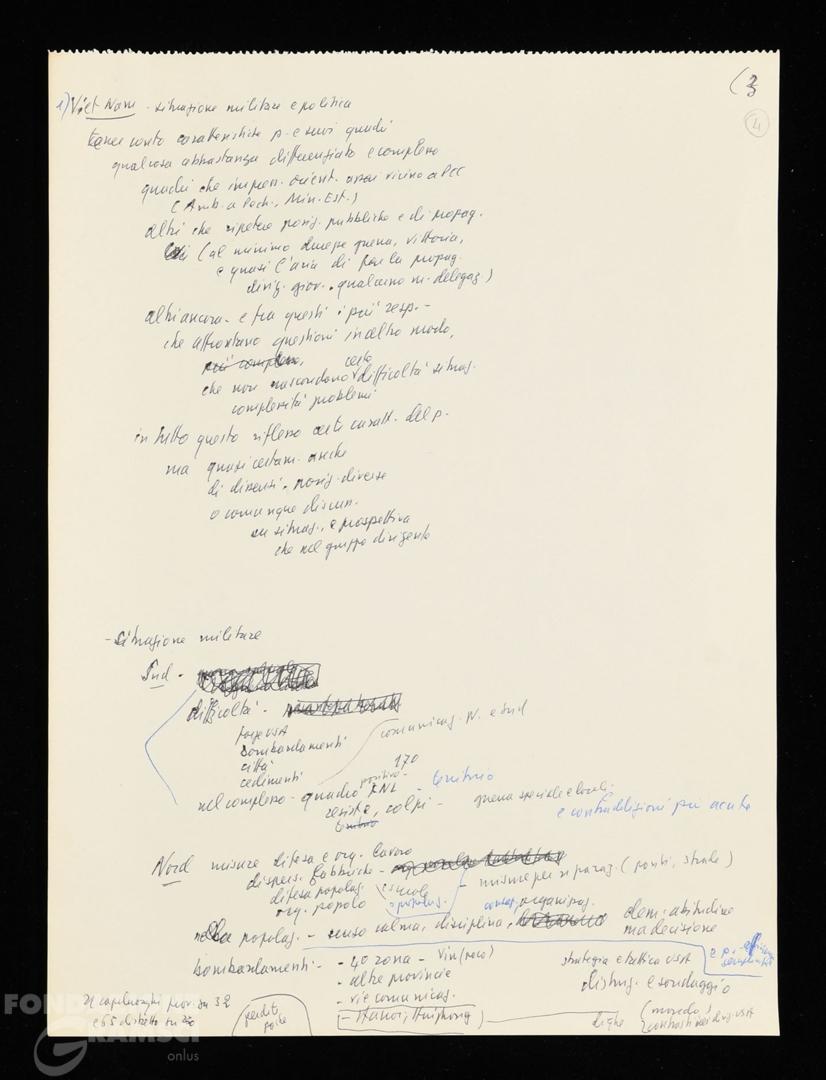 (3
4
1) Viet Nam - situazione militare e politica
tener conto caratteristiche p. e suoi quadri
qualcosa abbastanza differenziato e complesso
quadri che impress. orient. assai vicino a PCC
(Amb. a Pech., Min. Est.)
altri che ripetere posiz. pubbliche e di propag.
(al minimo guerra, vittoria,
e quasi l'aria di fare la propag.
diriz. giov., qualcuno m. delegaz)
altri ancora - e fra questi i più resp. -
che affrontano questioni in altro modo,
più complesso,
che non nascondono certe difficoltà situaz.
complessità problemi
in tutto questo riflesso certe caratt. del p.
ma quasi certam. anche
di dissensi, posiz. diverse
o comunque discuss.
su situaz. e prospettiva
che nel gruppo dirigente
- situazione militare
Sud -
difficoltà -
forze USA
bombardamenti
città
cedimenti
comunicaz. N. e Sud
170
nel complesso - quadro positivo - FNL - territorio
resiste, colpi - guerra speciale e locale
e contraddizioni più acute
Nord misure difesa e org. lavoro
dispers. fabbriche -
difesa popolaz. scuole
org. popolo popolaz.
- misure per riparaz. (ponti, strade)
organizzaz.
nella popolaz. - senso calma, disciplina, dem. abitudine
ma decisione
e p.
bombardamenti - - 4a zona - Vin (raso)
- altre provincie
- vie comunicaz.
- Hanoi, Haiphong
strategia e tattica USA
distruz. e sondaggio
dighe (mondo)
contrasti USA
21 capiluoghi prov. su 32
e 65 distretti su
perdite
poche
FONDAZIONE
GRAMSCI
onlus